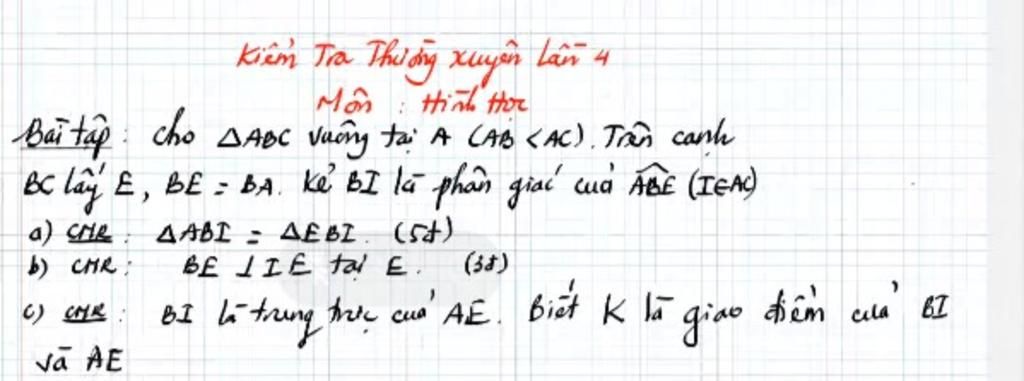 Kiểm Tra Thường xuyên Lần 4
Môn : Hình Học
Bài tập : cho △ABC vuông tại A (AB < AC). Trên cạnh
BC lấy E, BE = BA. Kẻ BI là phân giác của ABE (I∈AC)
a) CMR : △ABI = △EBI. (5đ)
b) CMR : BE ⊥ IE tại E. (3đ)
c) CMR : BI là trung trực của AE. Biết K là giao điểm của BI
và AE